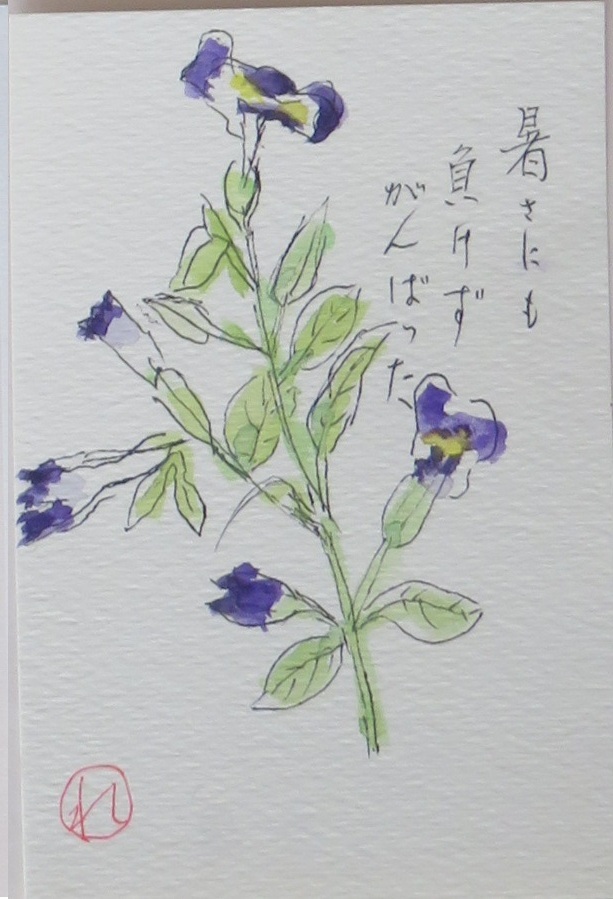 暑さにも
負けず
がんばった
れ